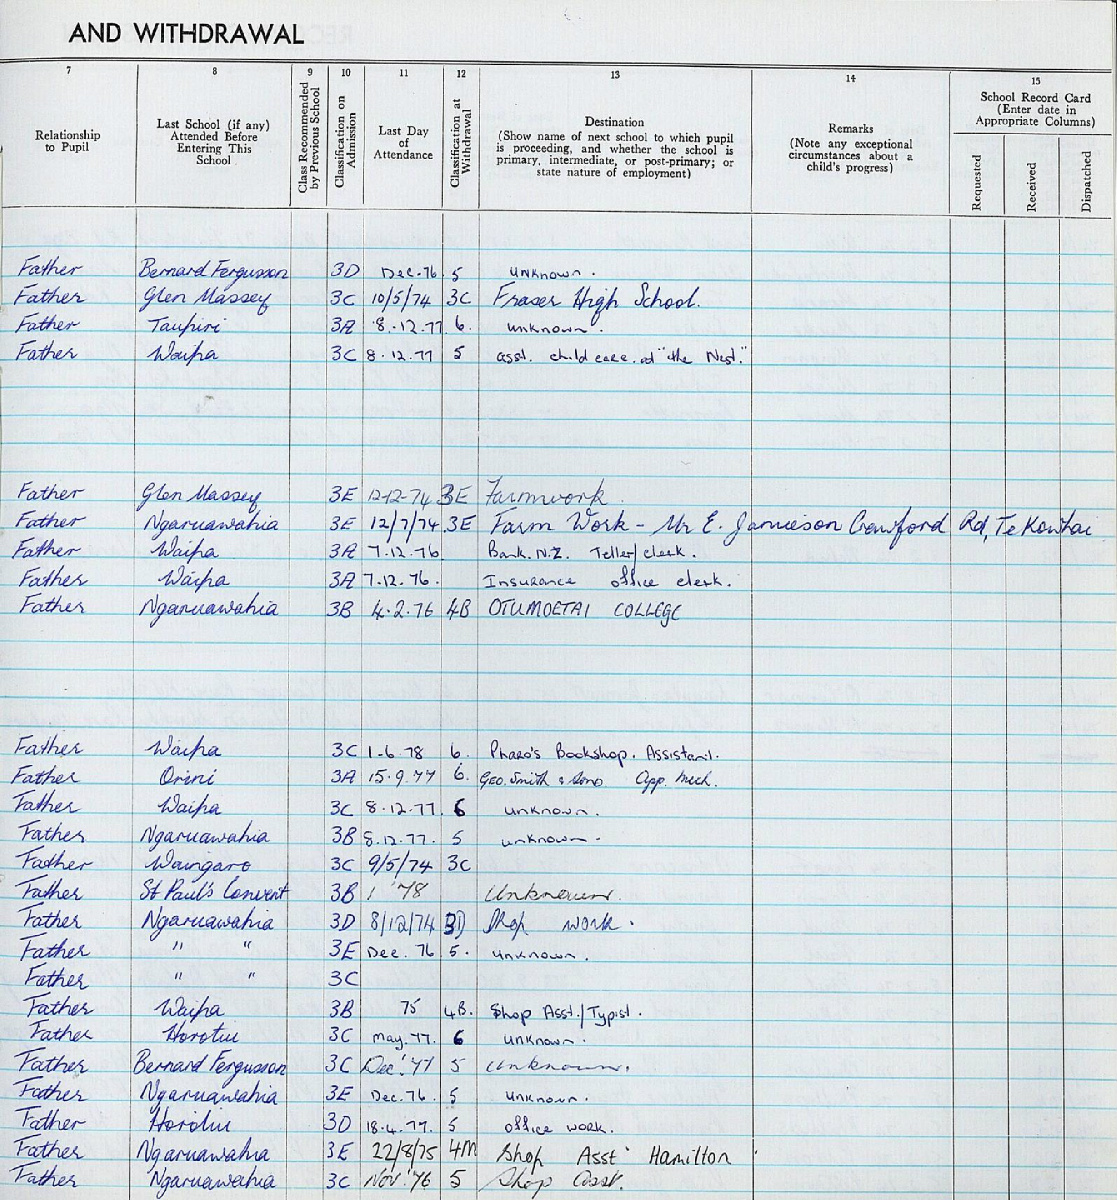 AND WITHDRAWAL
7 8 9 10 11 12 13 14 15
Relationship to Pupil
Last School (if any) Attended Before Entering This School
Class Recommended by Previous School
Classification on Admission
Last Day of Attendance
Classification at Withdrawal
Destination (Show name of next school to which pupil is proceeding, and whether the school is primary, intermediate, or post-primary; or state nature of employment)
Remarks (Note any exceptional circumstances about a child's progress)
School Record Card (Enter date in Appropriate Columns)
Requested Received Dispatched
Father Bernard Fergusson 3D Dec. 76 5 unknown.
Father Glen Massey 3C 10/5/74 3C Fraser High School.
Father Taupiri 3A 8.12.77 6. unknown.
Father Waipa 3C 8.12.77 5 asst. child care at "the Nest."
Father Glen Massey 3E 12-12-74 3E Farmwork.
Father Ngaruawahia 3E 12/7/74 3E Farm Work - Mr E. Jamieson Crawford Rd, Te Kowhai
Father Waipa 3A 7.12.76 Bank. N.Z. Teller/clerk.
Father Waipa 3A 7.12.76. Insurance office clerk.
Father Ngaruawahia 3B 4.2.76 4B OTUMOETAI COLLEGE
Father Waipa 3C 1-6.78 6. Pharo's Bookshop. Assistant.
Father Orini 3A 15.9.77 6. Geo. Smith & Sons App. Mech.
Father Waipa 3C 8.12.77. 6 unknown.
Father Ngaruawahia 3B 8.12.77. 5 unknown.
Father Waingaro 3C 9/5/74 3C
Father St Paul's Convent 3B 1 '78 Unknown.
Father Ngaruawahia 3D 8/12/74 3D Shop work.
Father " " 3E Dec. 76 5. unknown.
Father " " 3C
Father Waipa 3B 75 4B. Shop Asst./Typist.
Father Horotiu 3C may. 77. 6 unknown.
Father Bernard Fergusson 3C Dec '77 5 unknown.
Father Ngaruawahia 3E Dec. 76. 5 unknown.
Father Horotiu 3D 18.4.77. 5 office work.
Father Ngaruawahia 3E 22/8/75 4M Shop Asst Hamilton
Father Ngaruawahia 3C Nov '76 5 Shop Asst.